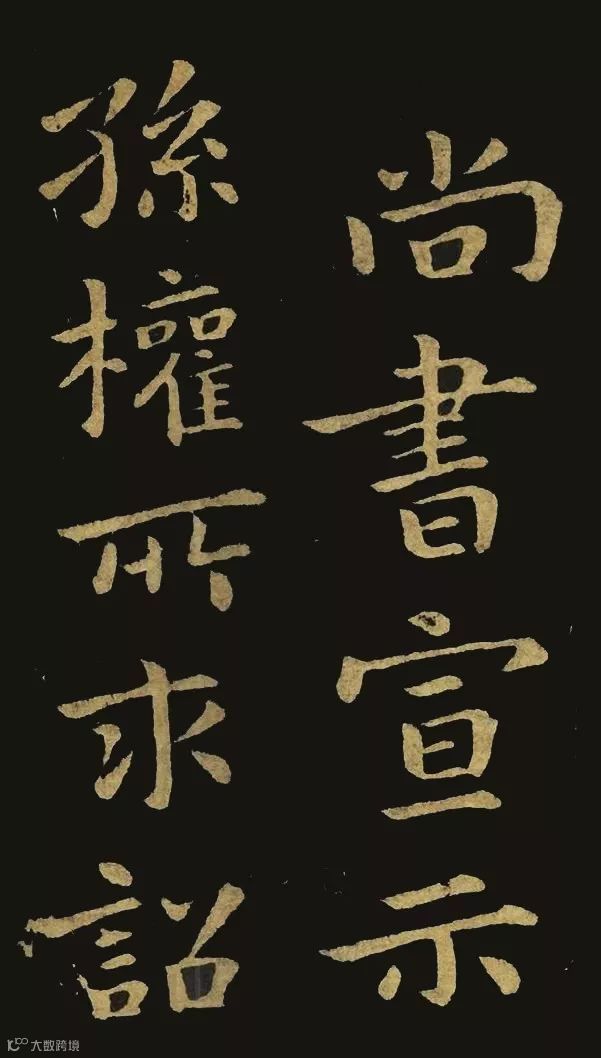 尚書宣示
孫權所求詔
大数跨境